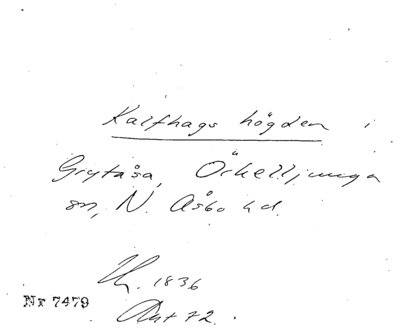 Kalfhags högden i
Grytåsa, Örkelljunga
sn, N. Åsbo hd.
1836
Nr 7479
72.